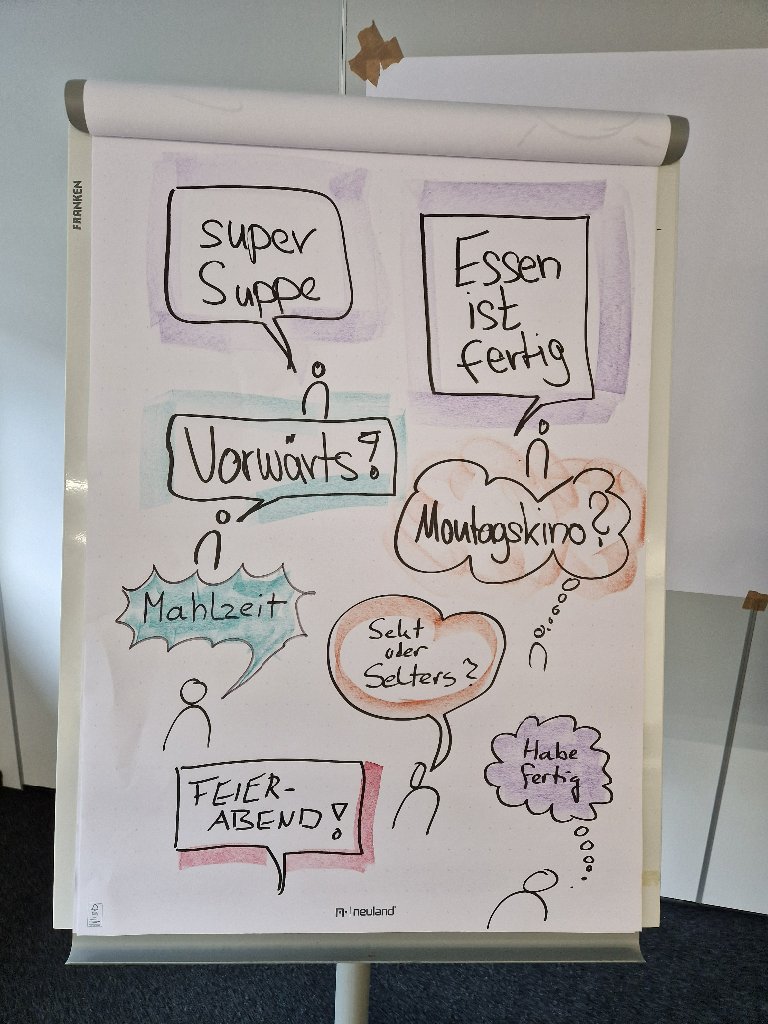 FRANKEN
super
Suppe
Essen
ist
fertig
Vorwärts!
Montagskino?
Mahlzeit
Sekt
oder
Selters?
Habe
fertig
FEIER-
ABEND!
neuland